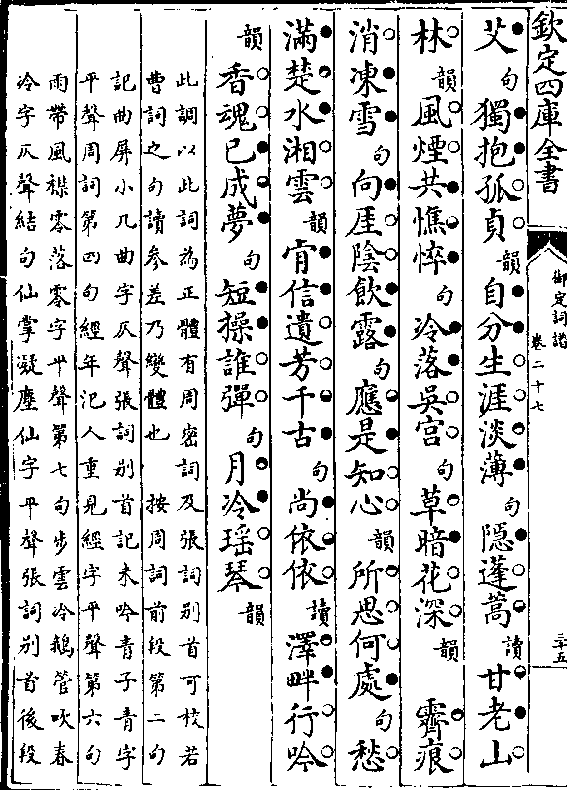 欽定四庫全書
御定詞譜
卷二十七
三十五
艾句獨抱孤貞韻自分生涯淡薄句隱蓬蒿讀甘老山
林韻風煙共憔悴句冷落吳宮句草暗花深韻霽痕
消凍雪句向厓陰飲露句應是知心韻所思何處句愁
滿楚水湘雲韻肯信遺芳千古句尚依依讀澤畔行吟
韻香魂已成夢句短操誰彈句月冷瑤琴韻
此調以此詞為正體有周密詞及張詞別首可校若
曹詞之句讀參差乃變體也 按周詞前段第二句
記曲屏小几曲字仄聲張詞別首記未吟青子青字
平聲周詞第四句經年汜人重見經字平聲第六句
雨帶風襟零落零字平聲第七句步雲冷鵝管吹春
冷字仄聲結句仙掌凝塵仙字平聲張詞別首後段